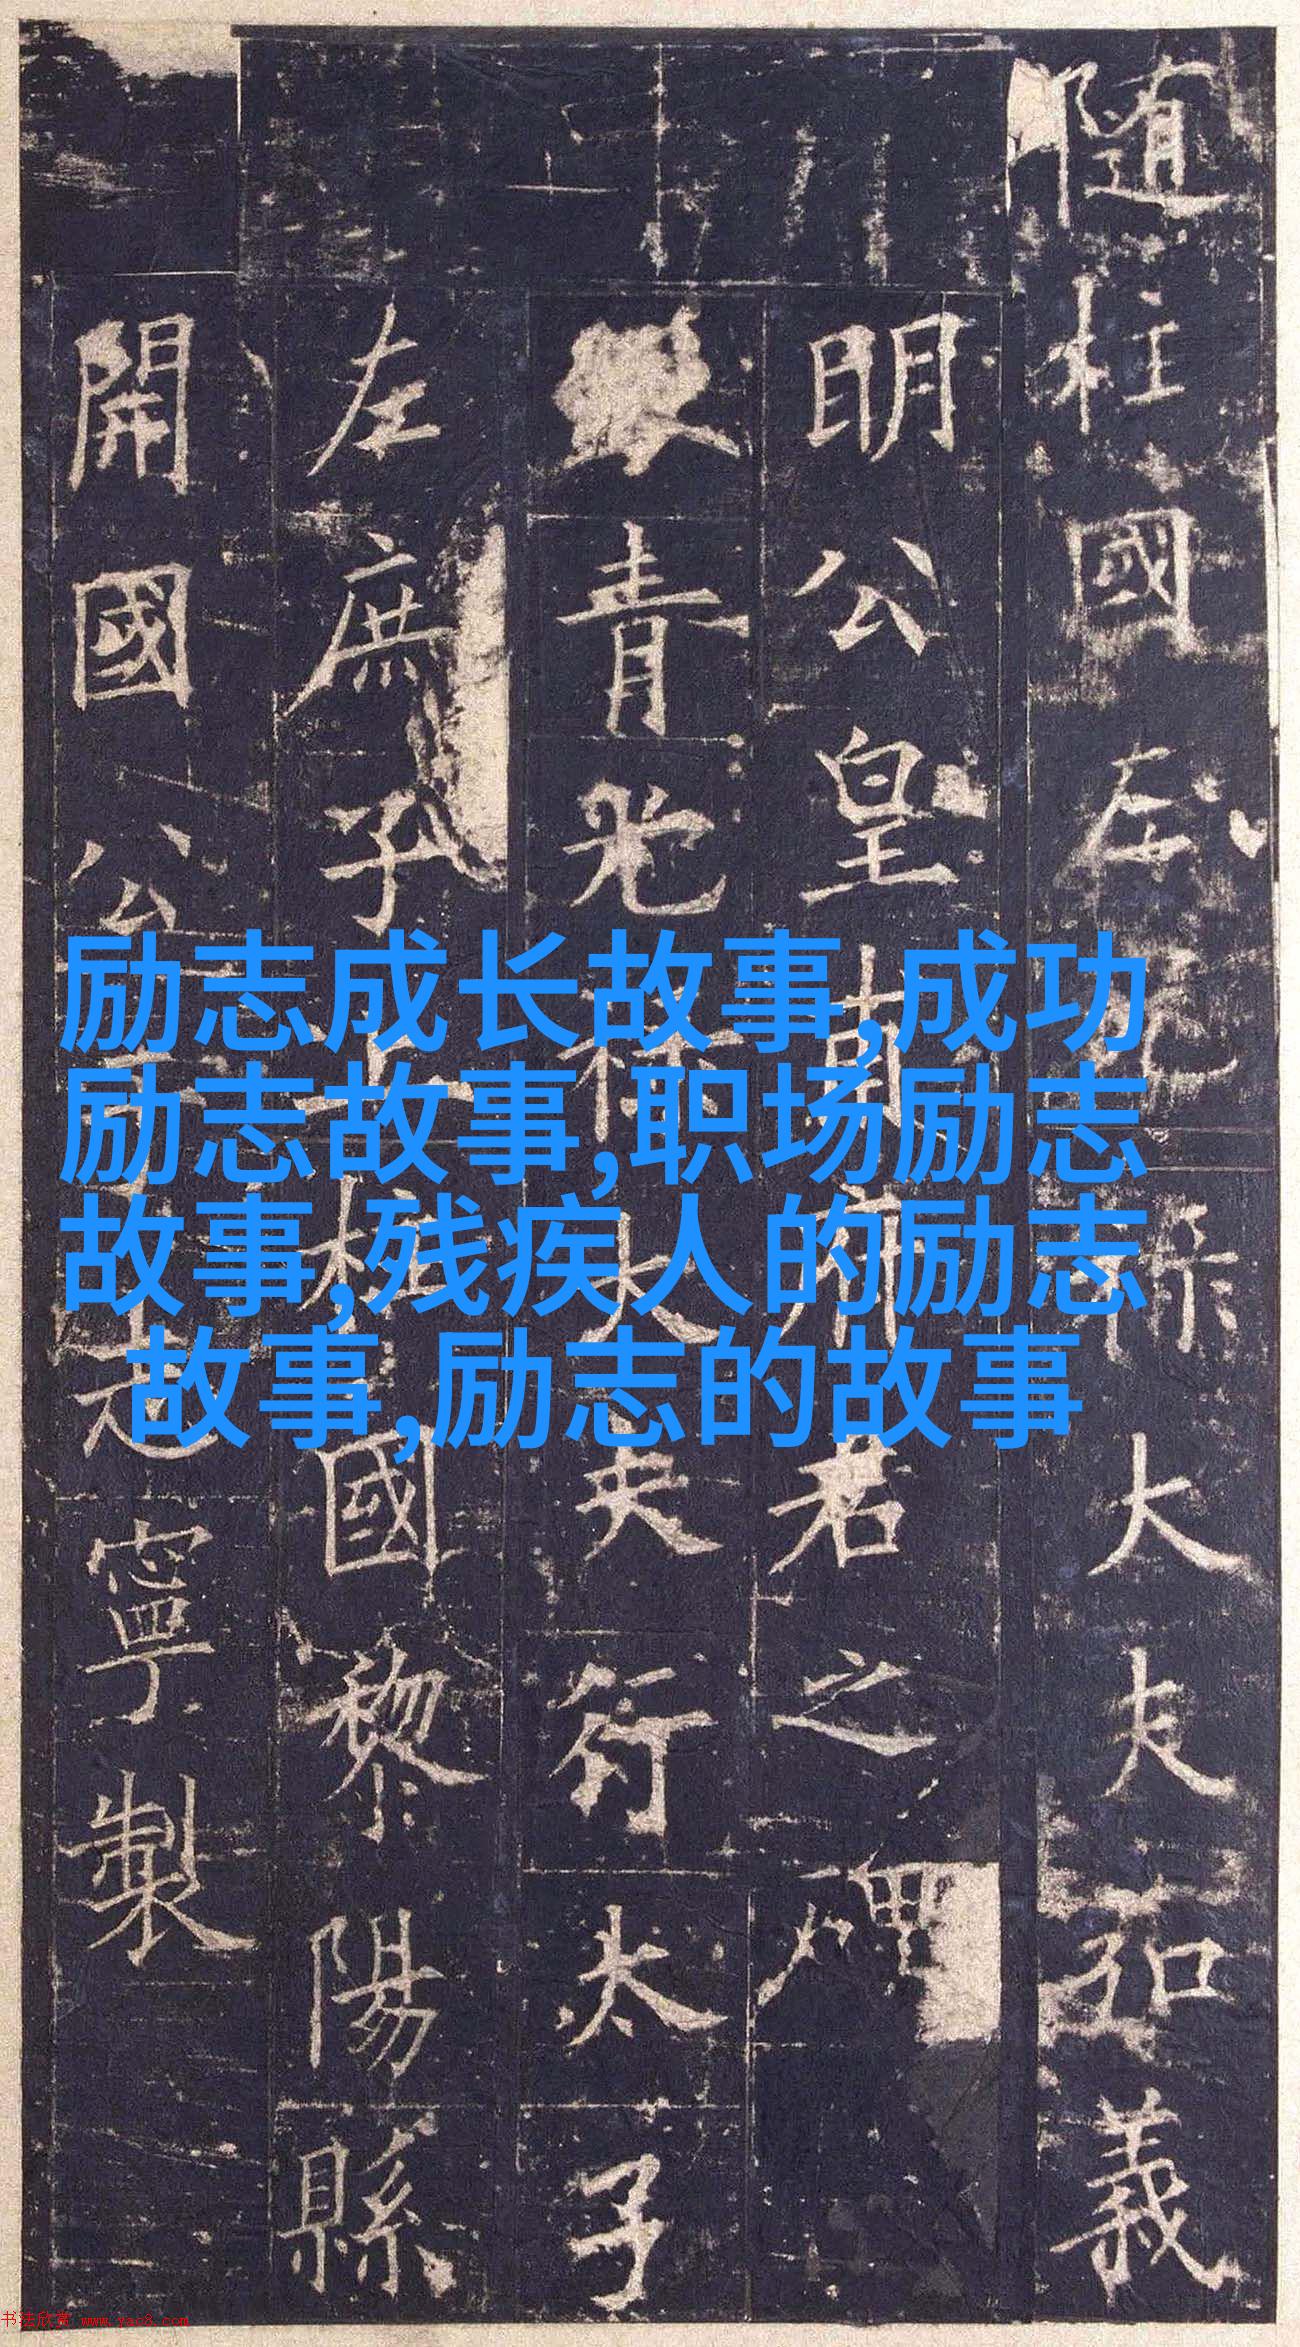 隨柱國左光祿大夫弘義
明公皇甫府君之碑
銀青光祿大夫行太子
左庶子上柱國黎陽縣
開國公于志寧製
励志成长故事,成功
励志故事,职场励志
故事,残疾人的励志
故事,励志的故事
书法欣赏 www.yac8.com